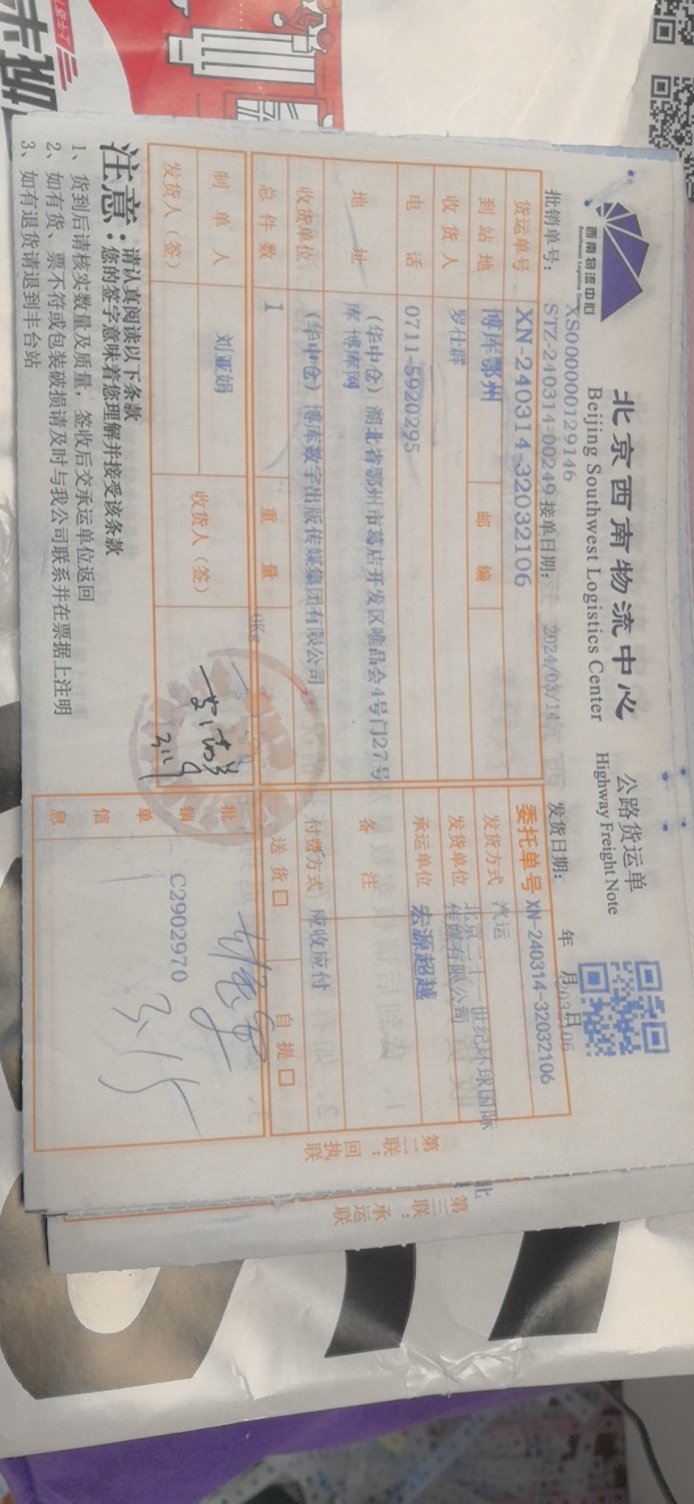 西南物流中心
Southwest Logistics Center
北京西南物流中心
Beijing Southwest Logistics Center
公路货运单
Highway Freight Note
XS000000129146
批销单号： STZ-240314-00249 接单日期： 2024/03/14 发货日期： 年 月 日
货运单号 XN-240314-32032106 委托单号 XN-240314-32032106
到站地 博库鄂州 邮编 发货方式 汽运
收货人 罗仕群 发货单位 北京二十一世纪环球国际传媒有限公司
电话 0711-5920295 承运单位 宏源超越
地址 (华中仓) 湖北省鄂州市葛店开发区唯品会4号门27号 备注
库 博库网
收货单位 (华中仓) 博库数字出版传媒集团有限公司 付费方式 应收应付
总件数 1 重量 送货□ 自提□
制单人 刘亚娟 收货人（签） 批销单信息 C2902970
发货人（签）
3.15
注意： 请认真阅读以下条款
您的签字意味着您理解并接受该条款
1、货到后请核实数量及质量，签收后交承运单位返回
2、如有货、票不符或包装破损请及时与我公司联系并在票据上注明
3、如有退货请退到丰台站
第二联：回执联
第三联：承运联